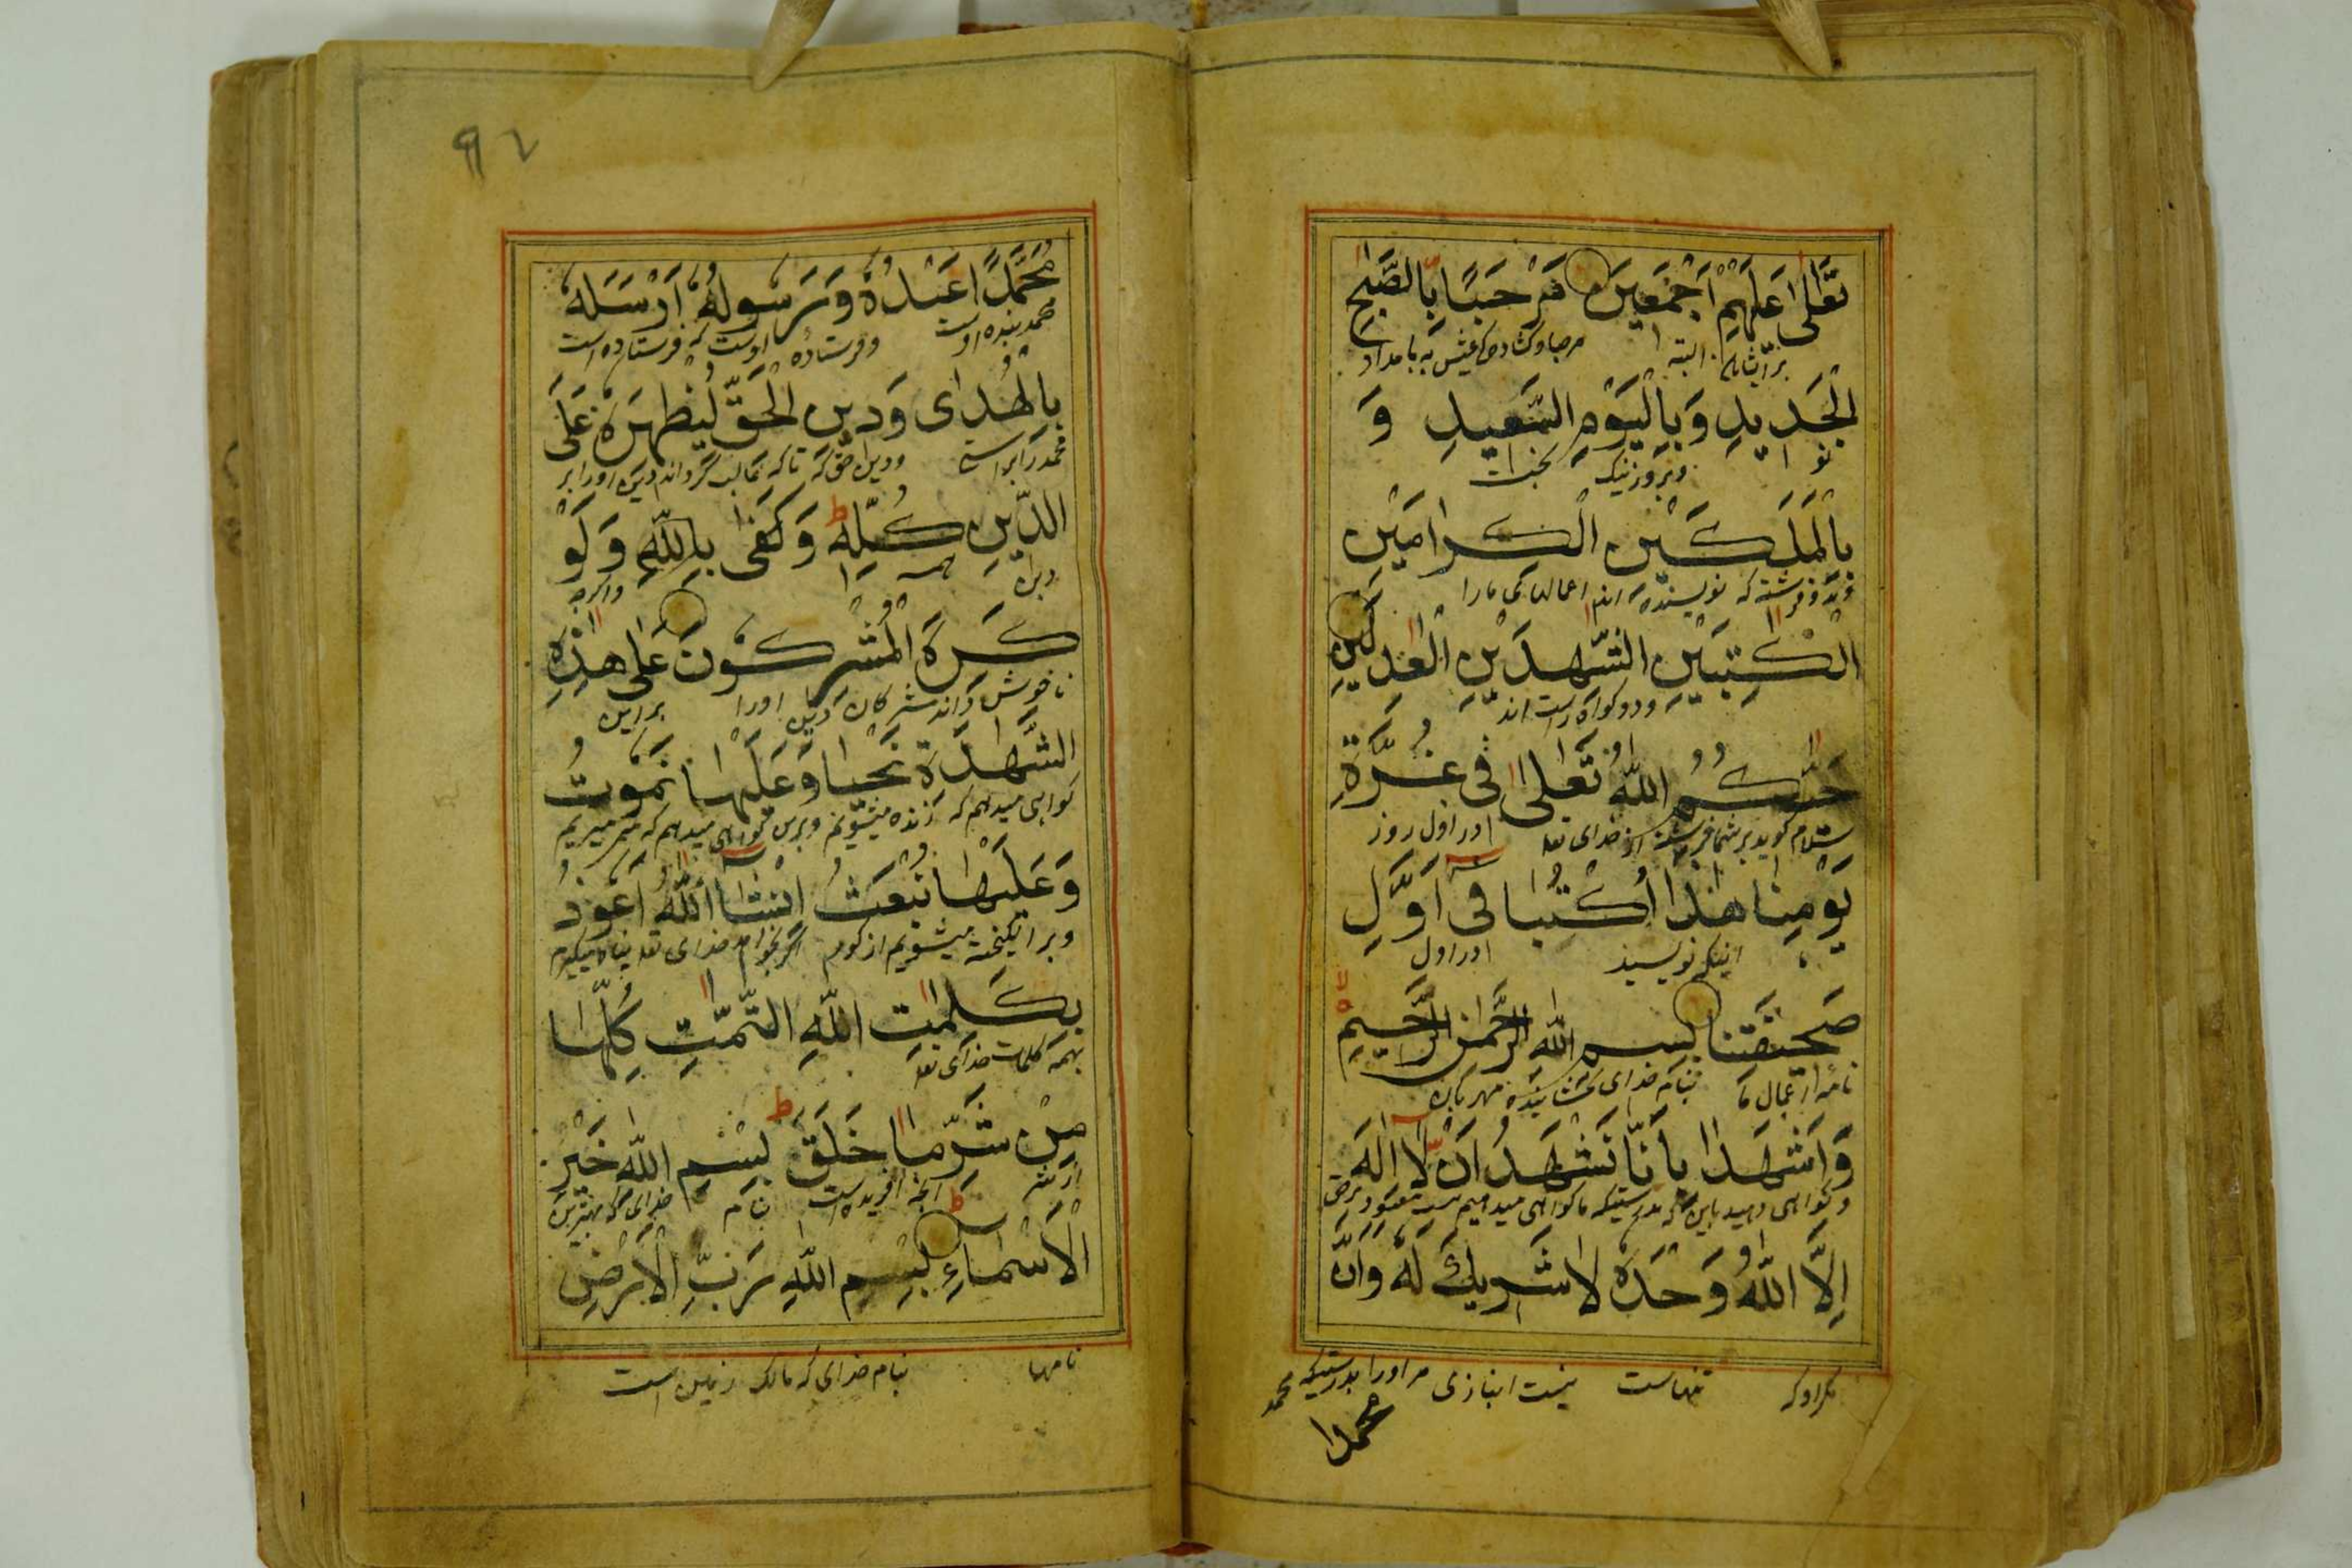 تَعَالٰى عَلَيْهِمْ اَجْمَعِيْنَ مَرْحَبًا بِالصَّبٰحِ
برایشان البته مرحبا و کشادگی عیش به بامداد
الْجَدِيدِ وَبِالْيَوْمِ السَّعِيدِ وَ
نو و بروز نیک
بِالْمَلَكَيْنِ الْكِرَامَيْنِ
و بدو فرشته که نویسنده اند اعمالهای ما را
الْكٰتِبَيْنِ الشّٰهِدَيْنِ الْعٰدِلَيْنِ
و دو کواه راست اند
حَيَّاكُمُ اللّٰهُ تَعَالٰى فِى غُرَّةِ
سلام کوید بر شما از خدای تعه در اول روز
يَوْمِنَا هٰذَا اُكْتُبَا فِى اَوَّلِ
اینک نویسید در اول
صَحِيْفَتِنَا بِسْمِ اللّٰهِ الرَّحْمٰنِ الرَّحِيْمِ
نامه اعمال ما بنام خدای بخشاینده مهربان
وَاشْهَدَا بِاَنَّا نَشْهَدُ اَنْ لَا اِلٰهَ
و کواهی دهید باین که بدرستیکه ما کواهی میدهیم
اِلَّا اللّٰهُ وَحْدَهُ لَا شَرِيْكَ لَهُ وَاَنَّ
مکر او که تنهاست نیست انبازی مر او را بدرستیکه محمد
محمدا
۹۲
مُحَمَّدًا عَبْدُهُ وَرَسُولُهُ اَرْسَلَهُ
محمد بنده اوست و فرستاده اوست که فرستاده است
بِالْهُدٰى وَدِينِ الْحَقِّ لِيُظْهِرَهُ عَلَى
محمد را براستی و دین حق که تا که غالب کرداند دین او را بر
الدِّينِ كُلِّهِ وَكَفٰى بِاللّٰهِ وَلَوْ
دین همه واکرچه
كَرِهَ الْمُشْرِكُوْنَ عَلٰى هٰذِهِ
ناخوش دارند مشرکان دین او را براین
الشَّهَادَةِ نَحْيَا وَعَلَيْهَا نَمُوتُ
کواهی میدهم که زنده میشویم و برین کواهی میدهم که میمیریم
وَعَلَيْهَا نُبْعَثُ اِنْشَاءَ اللّٰهُ اَعُوْذُ
و برانکیخته میشویم از کور اکر بخواهد خدای تعه پناه میکیرم
بِكَلِمٰتِ اللّٰهِ التَّامّٰتِ كُلِّهَا
بهمه کلمات خدای تعه
مِنْ شَرِّ مَا خَلَقَ بِسْمِ اللّٰهِ خَيْرِ
از شر انچه افریده است بنام خدای که بهترین
الْاَسْمَاءِ بِسْمِ اللّٰهِ رَبِّ الْاَرْضِ
نامها بنام خدای که مالک زمین است